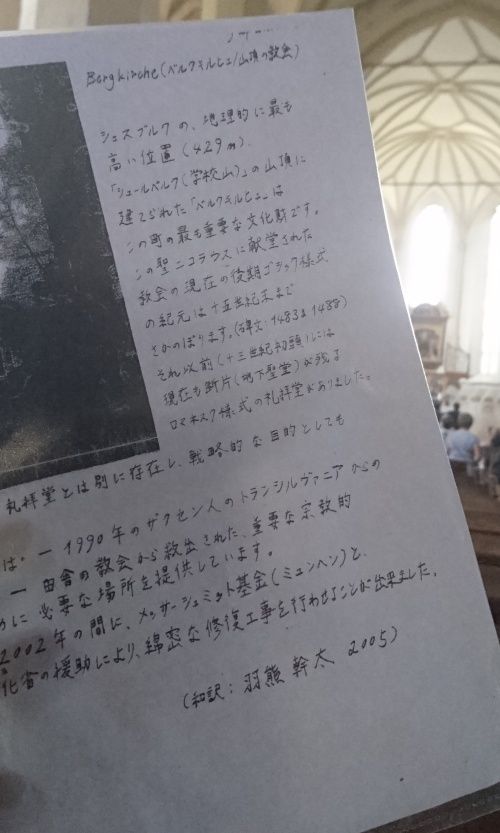 Bergkirche (ベルクキルヒェ/山頂の教会)
シェスブルクの、地理的に最も
高い位置 (429m).
「シュールベルク(学校山)」の山頂に
建てられた「ベルクキルヒェ」は
この町の最も重要な文化財です。
この聖ニコラウスに献堂された
教会の現在の後期ゴシック様式
の紀元は十五世紀末まで
さかのぼります。(碑文:1483と1488)
それ以前(十三世紀初頭)には
現在も断片(地下聖堂)が残る
ロマネスク様式の礼拝堂がありました。
礼拝堂とは別に存在し、戦略的な目的としても
は. ー 1990年のザクセン人のトランシルヴァニアからの
ー 田舎の教会から救出された、重要な宗教的
に必要な場所を提供しています。
2002年の間に、メッサーシュミット基金(ミュンヘン)と、
化省の援助により、綿密な修復工事を行わせることが出来ました。
(和訳:羽熊 幹太 2005)